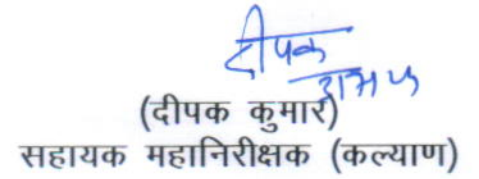 दीपक
(दीपक कुमार)
सहायक महानिरीक्षक (कल्याण)